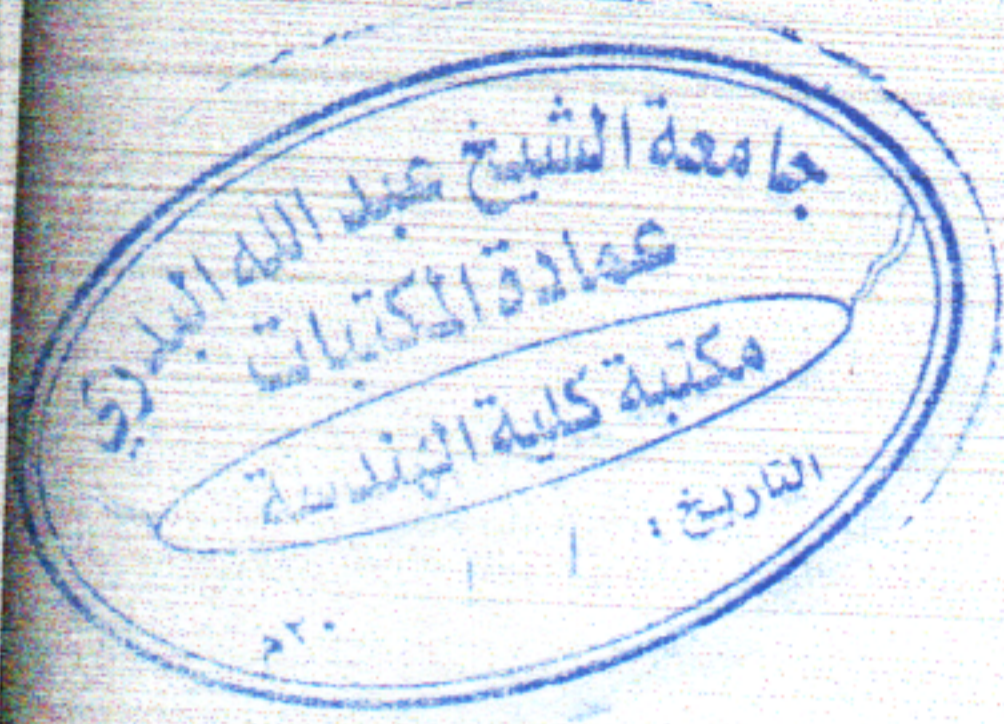 جامعة الشيخ عبد الله البدري
عمادة المكتبات
مكتبة كلية الهندسة
التاريخ : / / ٢٠م